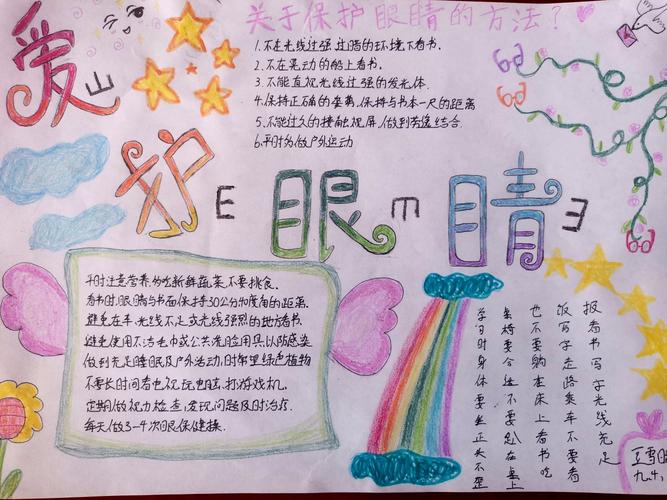 关于保护眼睛的方法?
爱山
护E眼m睛ヨ
1.不在光线过强,过暗的环境下看书.
2.不在晃动的船上看书.
3.不能直视光线过强的发光体.
4.保持正确的坐姿,保持与书本一尺的距离
5.不能过久的接触视屏,做到劳逸结合.
6.平时多做户外运动
平时注意营养,多吃新鲜蔬菜,不要挑食.
看书时,眼睛与书面保持30公分40度角的距离.
避免在车,光线不足或光线强烈的地方看书.
避免使用不洁毛巾或公共洗脸用具,以防感染
做到充足睡眠及户外活动,时常望绿色植物
不要长时间看电视,玩电脑,打游戏机.
定期做视力检查,发现问题及时治疗.
每天做3-4次眼保健操.
报看书写字光线充足
饭写字走路乘车不要看
也不要躺在床上看书吃
桌椅要合适不要趴在桌上
学习时身体要坐正头不歪